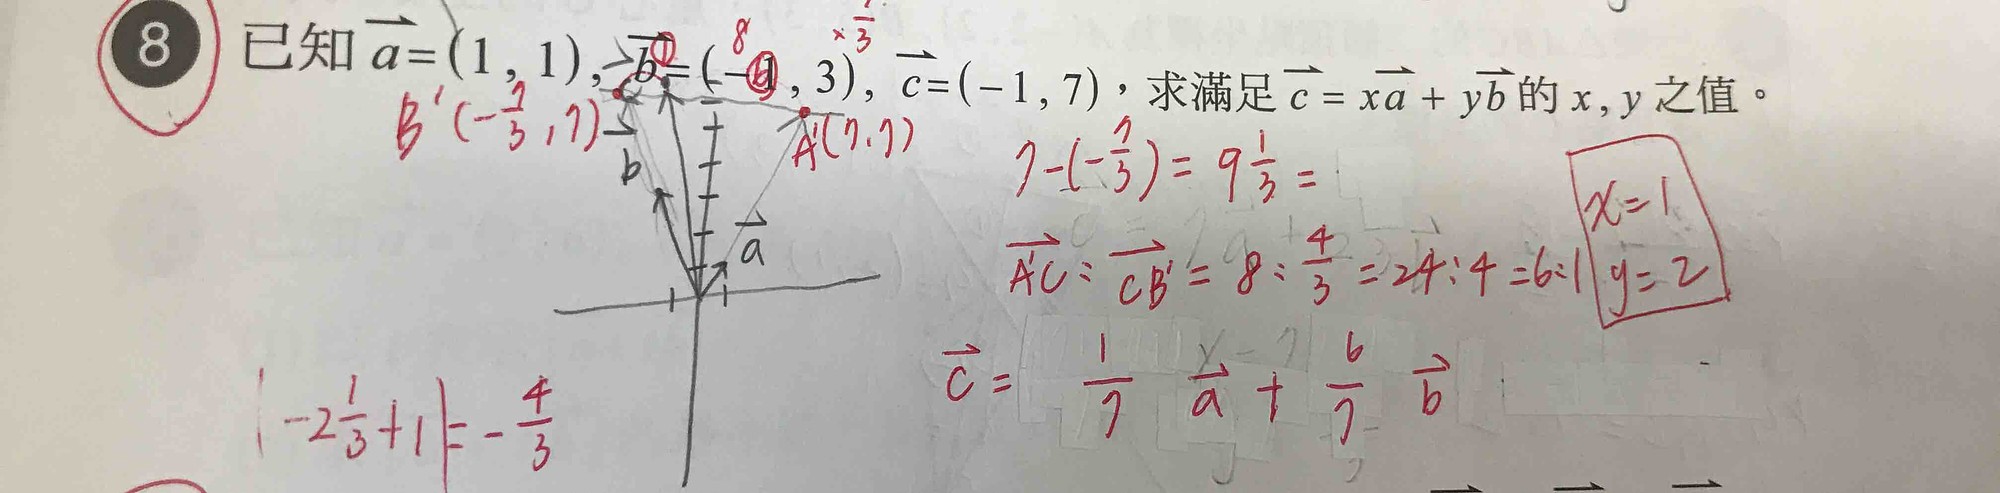 8 已知 a⃗=(1, 1), b⃗=(−1, 3), c⃗=(−1, 7),求滿足 c⃗=xa⃗+yb⃗ 的 x, y 之值。
8 ×7/3
① ⑥
B'(-7/3, 7) b⃗ A'(7, 7)
a⃗
7-(-7/3) = 9 1/3 =
A'C⃗ : CB'⃗ = 8 : 4/3 = 24:4 = 6:1
x=1
y=2
c⃗ = 1/7 a⃗ + 6/7 b⃗
|-2 1/3 + 1| = - 4/3